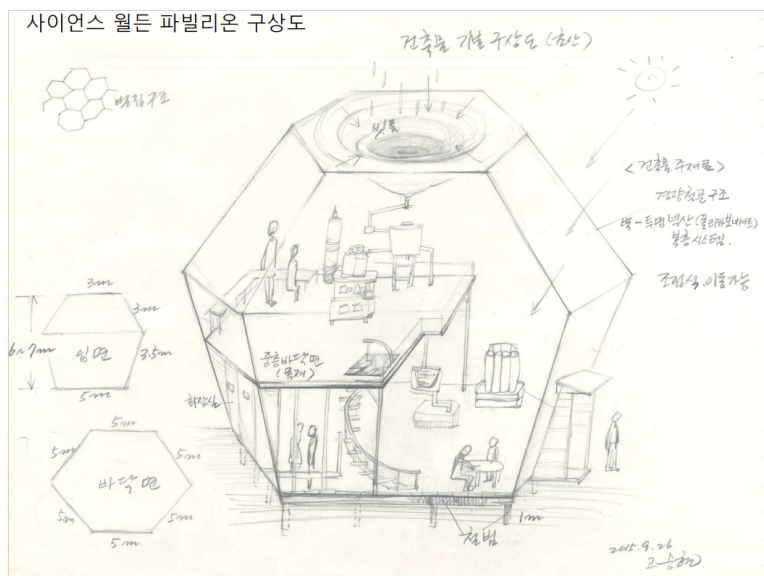 사이언스 월든 파빌리온 구상도
건축물 기본 구상도 (초안)
벌집구조
빗물
<건축물 주재료>
경량철골구조
벽-투명 넥산(폴리카보네이트)
복층시스템.
조립식. 이동가능
3m
3m
6~7m
입면
3.5m
5m
중층바닥면
(목재)
화장실
5m
5m
5m
바닥면
5m
5m
5m
1m
철빔
2015. 9. 26
고승현